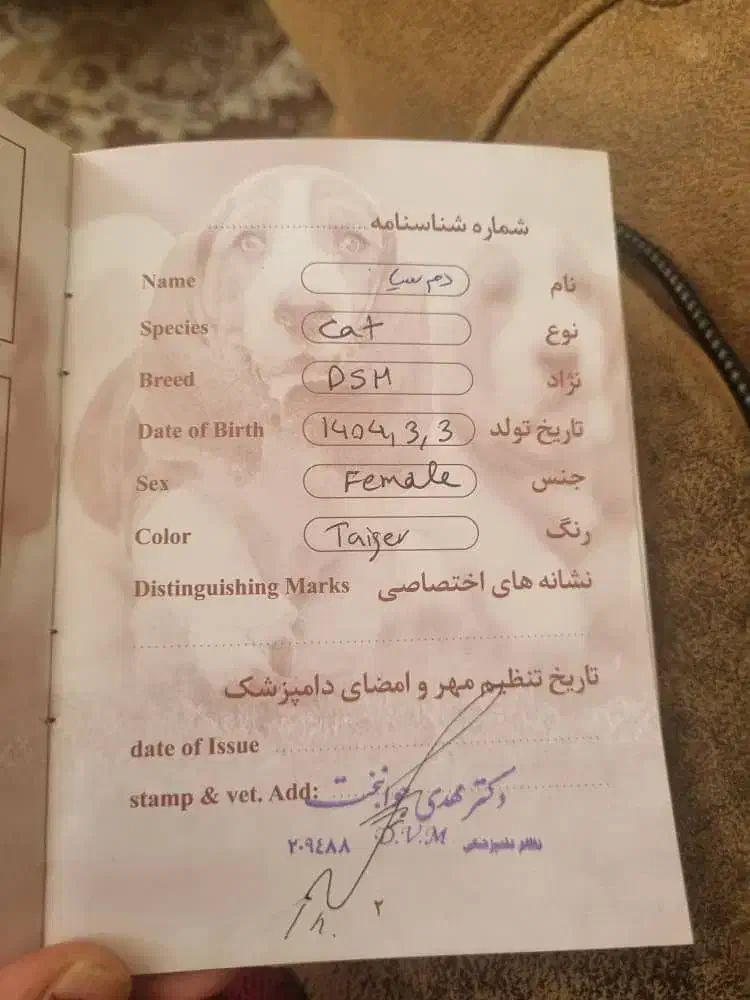 شماره شناسنامه
Name دم سیا نام
Species cat نوع
Breed DSH نژاد
Date of Birth 1404, 3, 3 تاریخ تولد
Sex Female جنس
Color Taiger رنگ
Distinguishing Marks نشانه های اختصاصی
تاریخ تنظیم مهر و امضای دامپزشک
date of Issue
stamp & vet. Add: دکتر مهدی جوانبخت
۲۰۹۴۸۸ D.V.M
۲